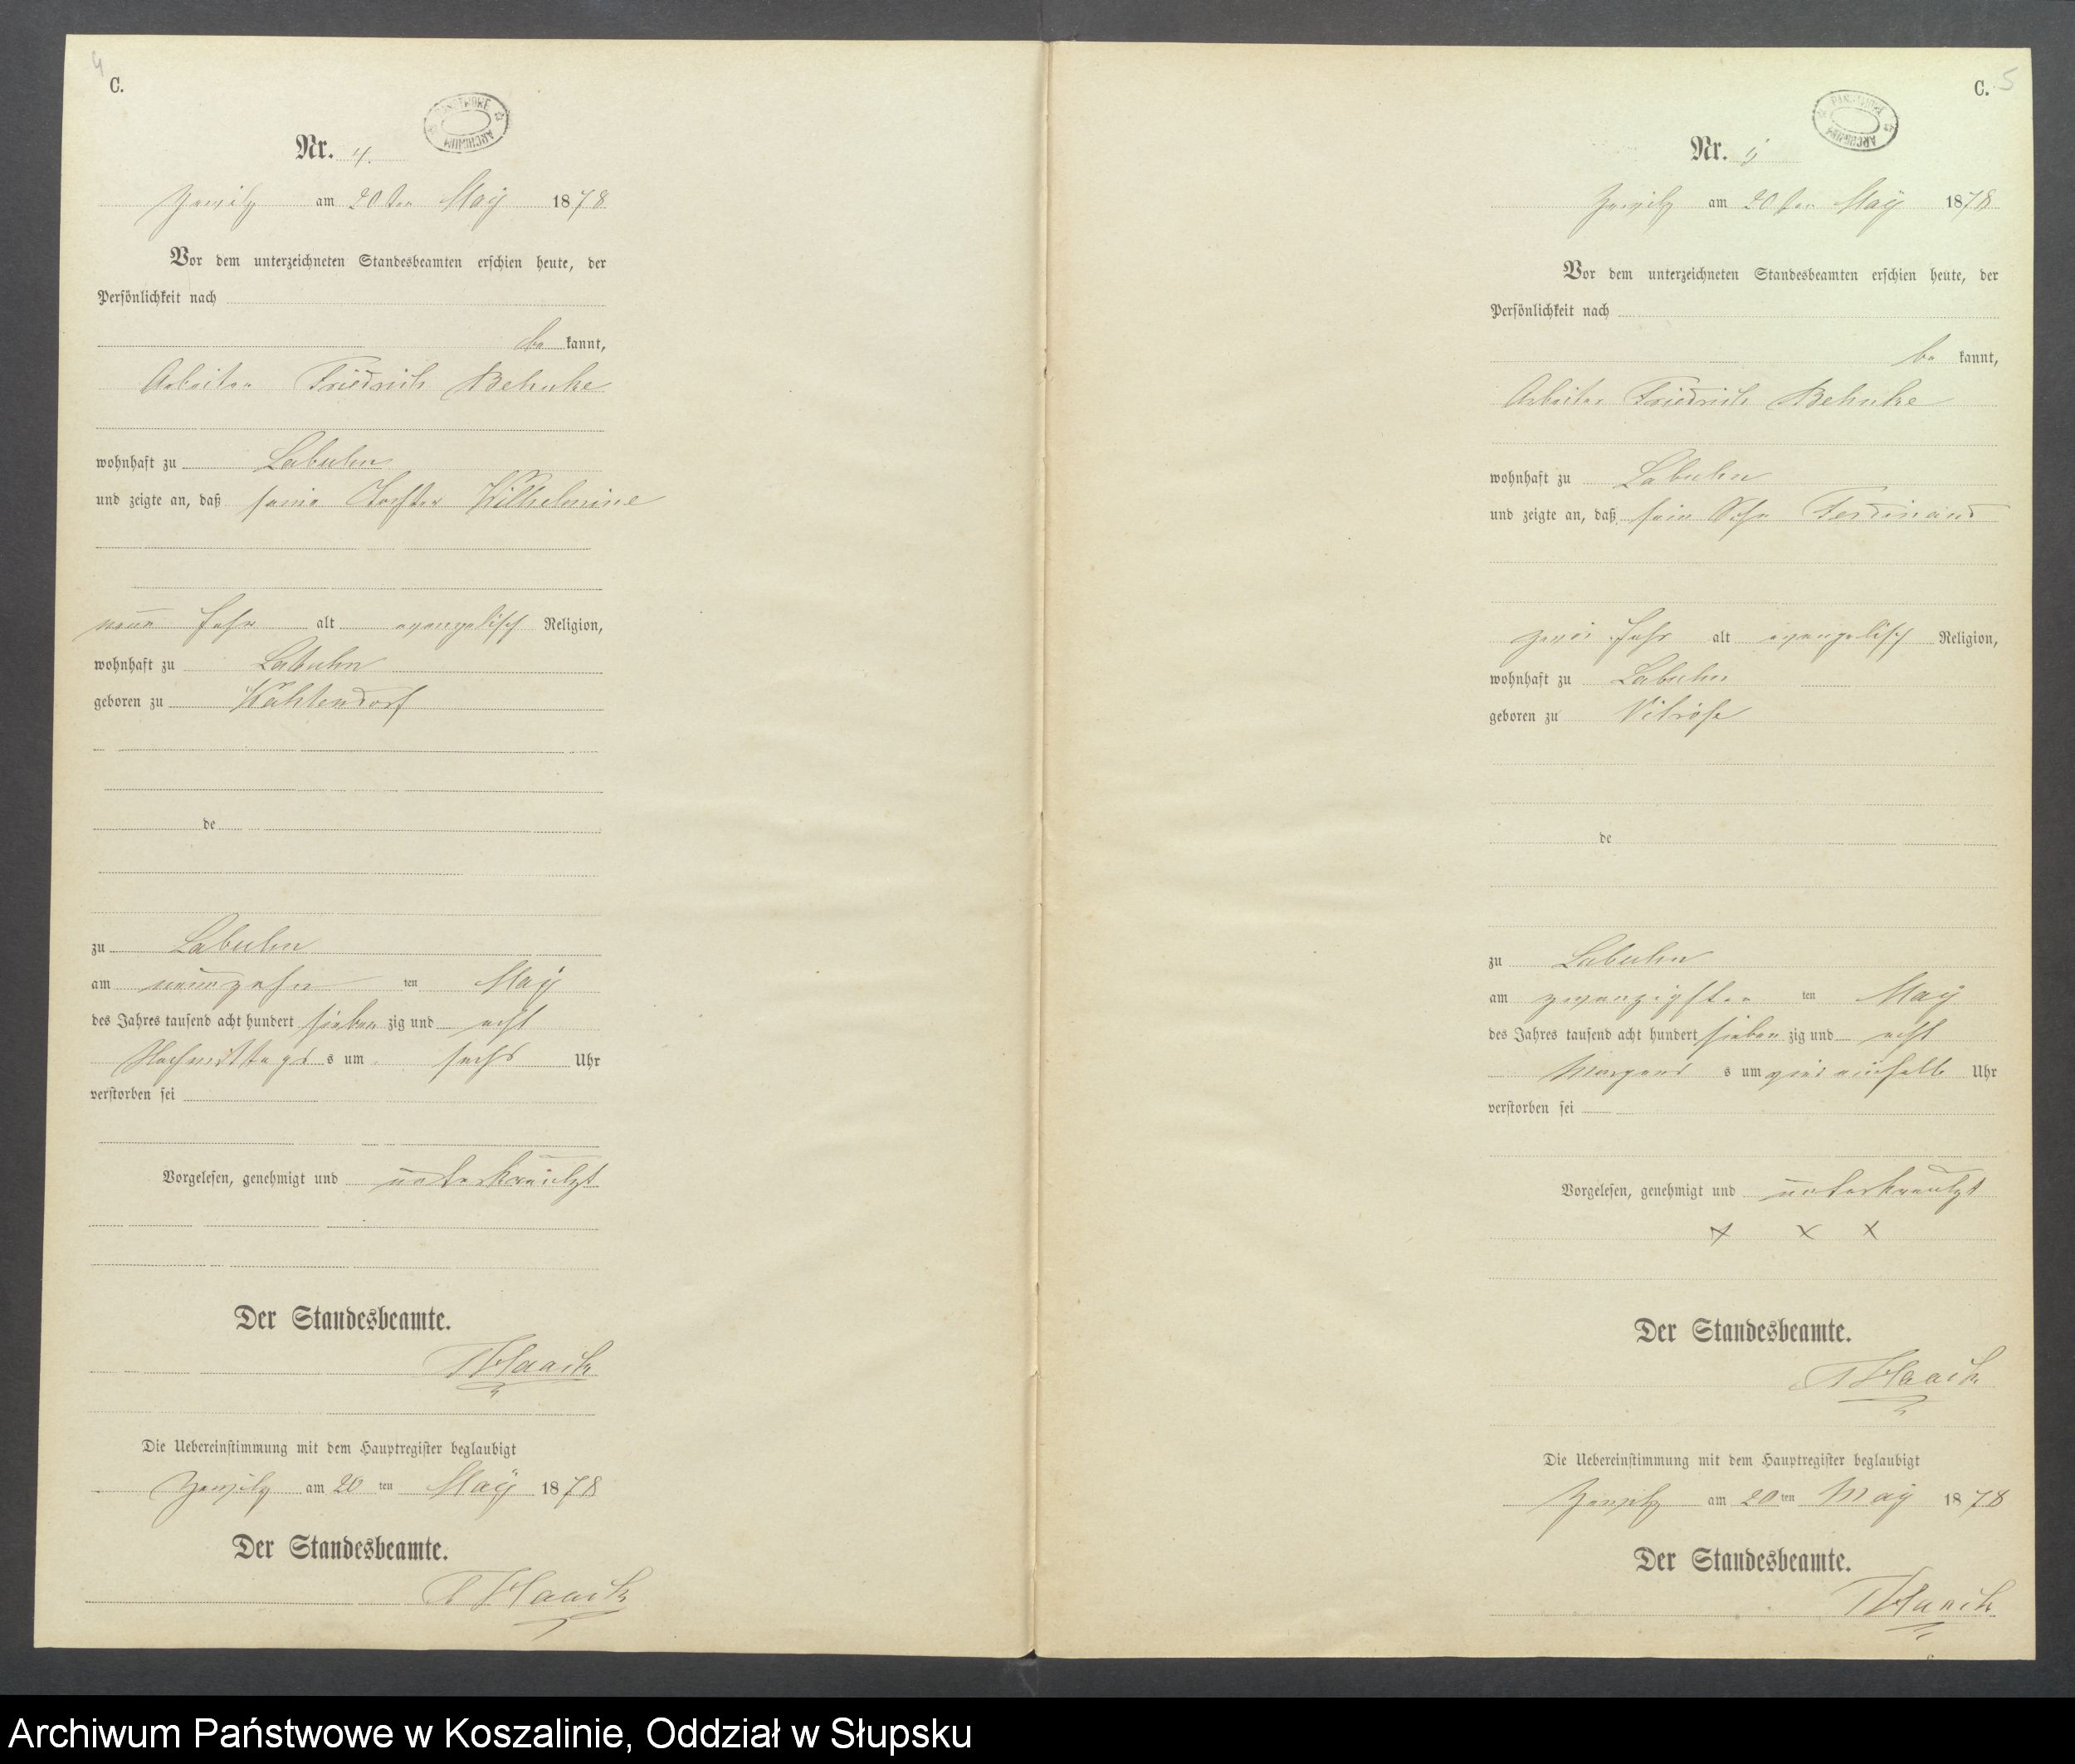 4
C.
PAŃSTWOWE ARCHIWUM
Nr. 4.
am 20 ten May 1878
Vor dem unterzeichneten Standesbeamten erschien heute, der
Persönlichkeit nach
be kannt,
Arbeiter Friedrich Behnke
wohnhaft zu Labuhn
und zeigte an, daß seine Tochter Wilhelmine
neun Jahr alt evangelisch Religion,
wohnhaft zu Labuhn
geboren zu Wahlendorf
de
zu Labuhn
am neunzehn ten May
des Jahres tausend acht hundert sieben zig und acht
Nachmittags s um sechs Uhr
verstorben sei
Vorgelesen, genehmigt und unterkreutzt
Der Standesbeamte.
Haack
Die Uebereinstimmung mit dem Hauptregister beglaubigt
am 20 ten May 1878
Der Standesbeamte.
Haack
C. 5
PAŃSTWOWE ARCHIWUM
Nr. 5
am 20 ten May 1878
Vor dem unterzeichneten Standesbeamten erschien heute, der
Persönlichkeit nach
be kannt,
Arbeiter Friedrich Behnke
wohnhaft zu Labuhn
und zeigte an, daß sein Sohn Ferdinand
zwei Jahr alt evangelisch Religion,
wohnhaft zu Labuhn
geboren zu
de
zu Labuhn
am zwanzigsten ten May
des Jahres tausend acht hundert sieben zig und acht
Morgens s um Uhr
verstorben sei
Vorgelesen, genehmigt und unterkreutzt
x x x
Der Standesbeamte.
Haack
Die Uebereinstimmung mit dem Hauptregister beglaubigt
am 20 ten May 1878
Der Standesbeamte.
Haack
Archiwum Państwowe w Koszalinie, Oddział w Słupsku